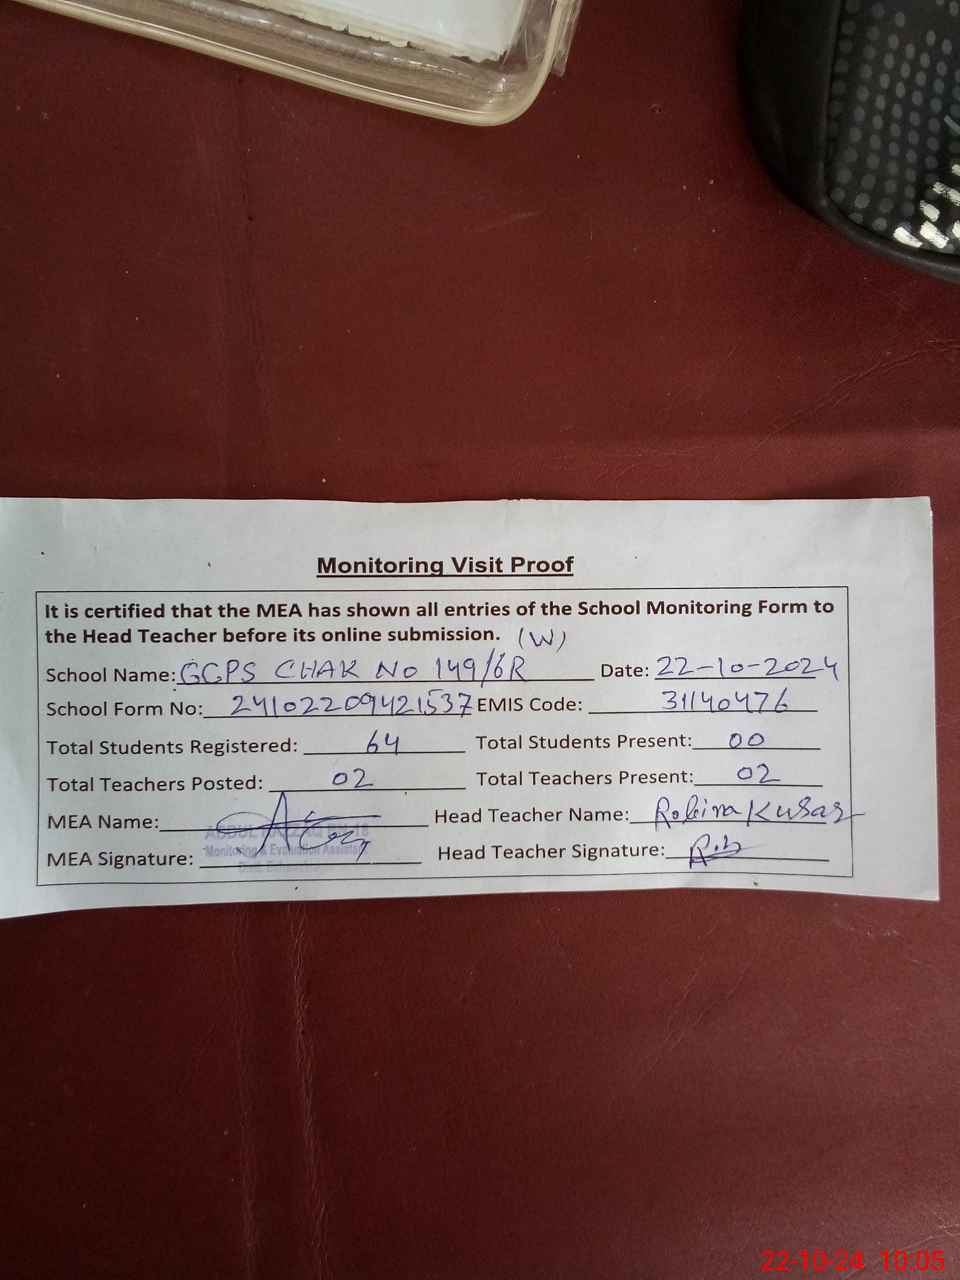 Monitoring Visit Proof
It is certified that the MEA has shown all entries of the School Monitoring Form to
the Head Teacher before its online submission. (W)
School Name: GGPS CHAK No 149/6R Date: 22-10-2024
School Form No: 24102209421537 EMIS Code: 31140476
Total Students Registered: 64 Total Students Present: 00
Total Teachers Posted: 02 Total Teachers Present: 02
MEA Name: Head Teacher Name: Robina Kusar
Monitoring & Evaluation Assistant
MEA Signature: Head Teacher Signature: Rob
22-10-24 10:05